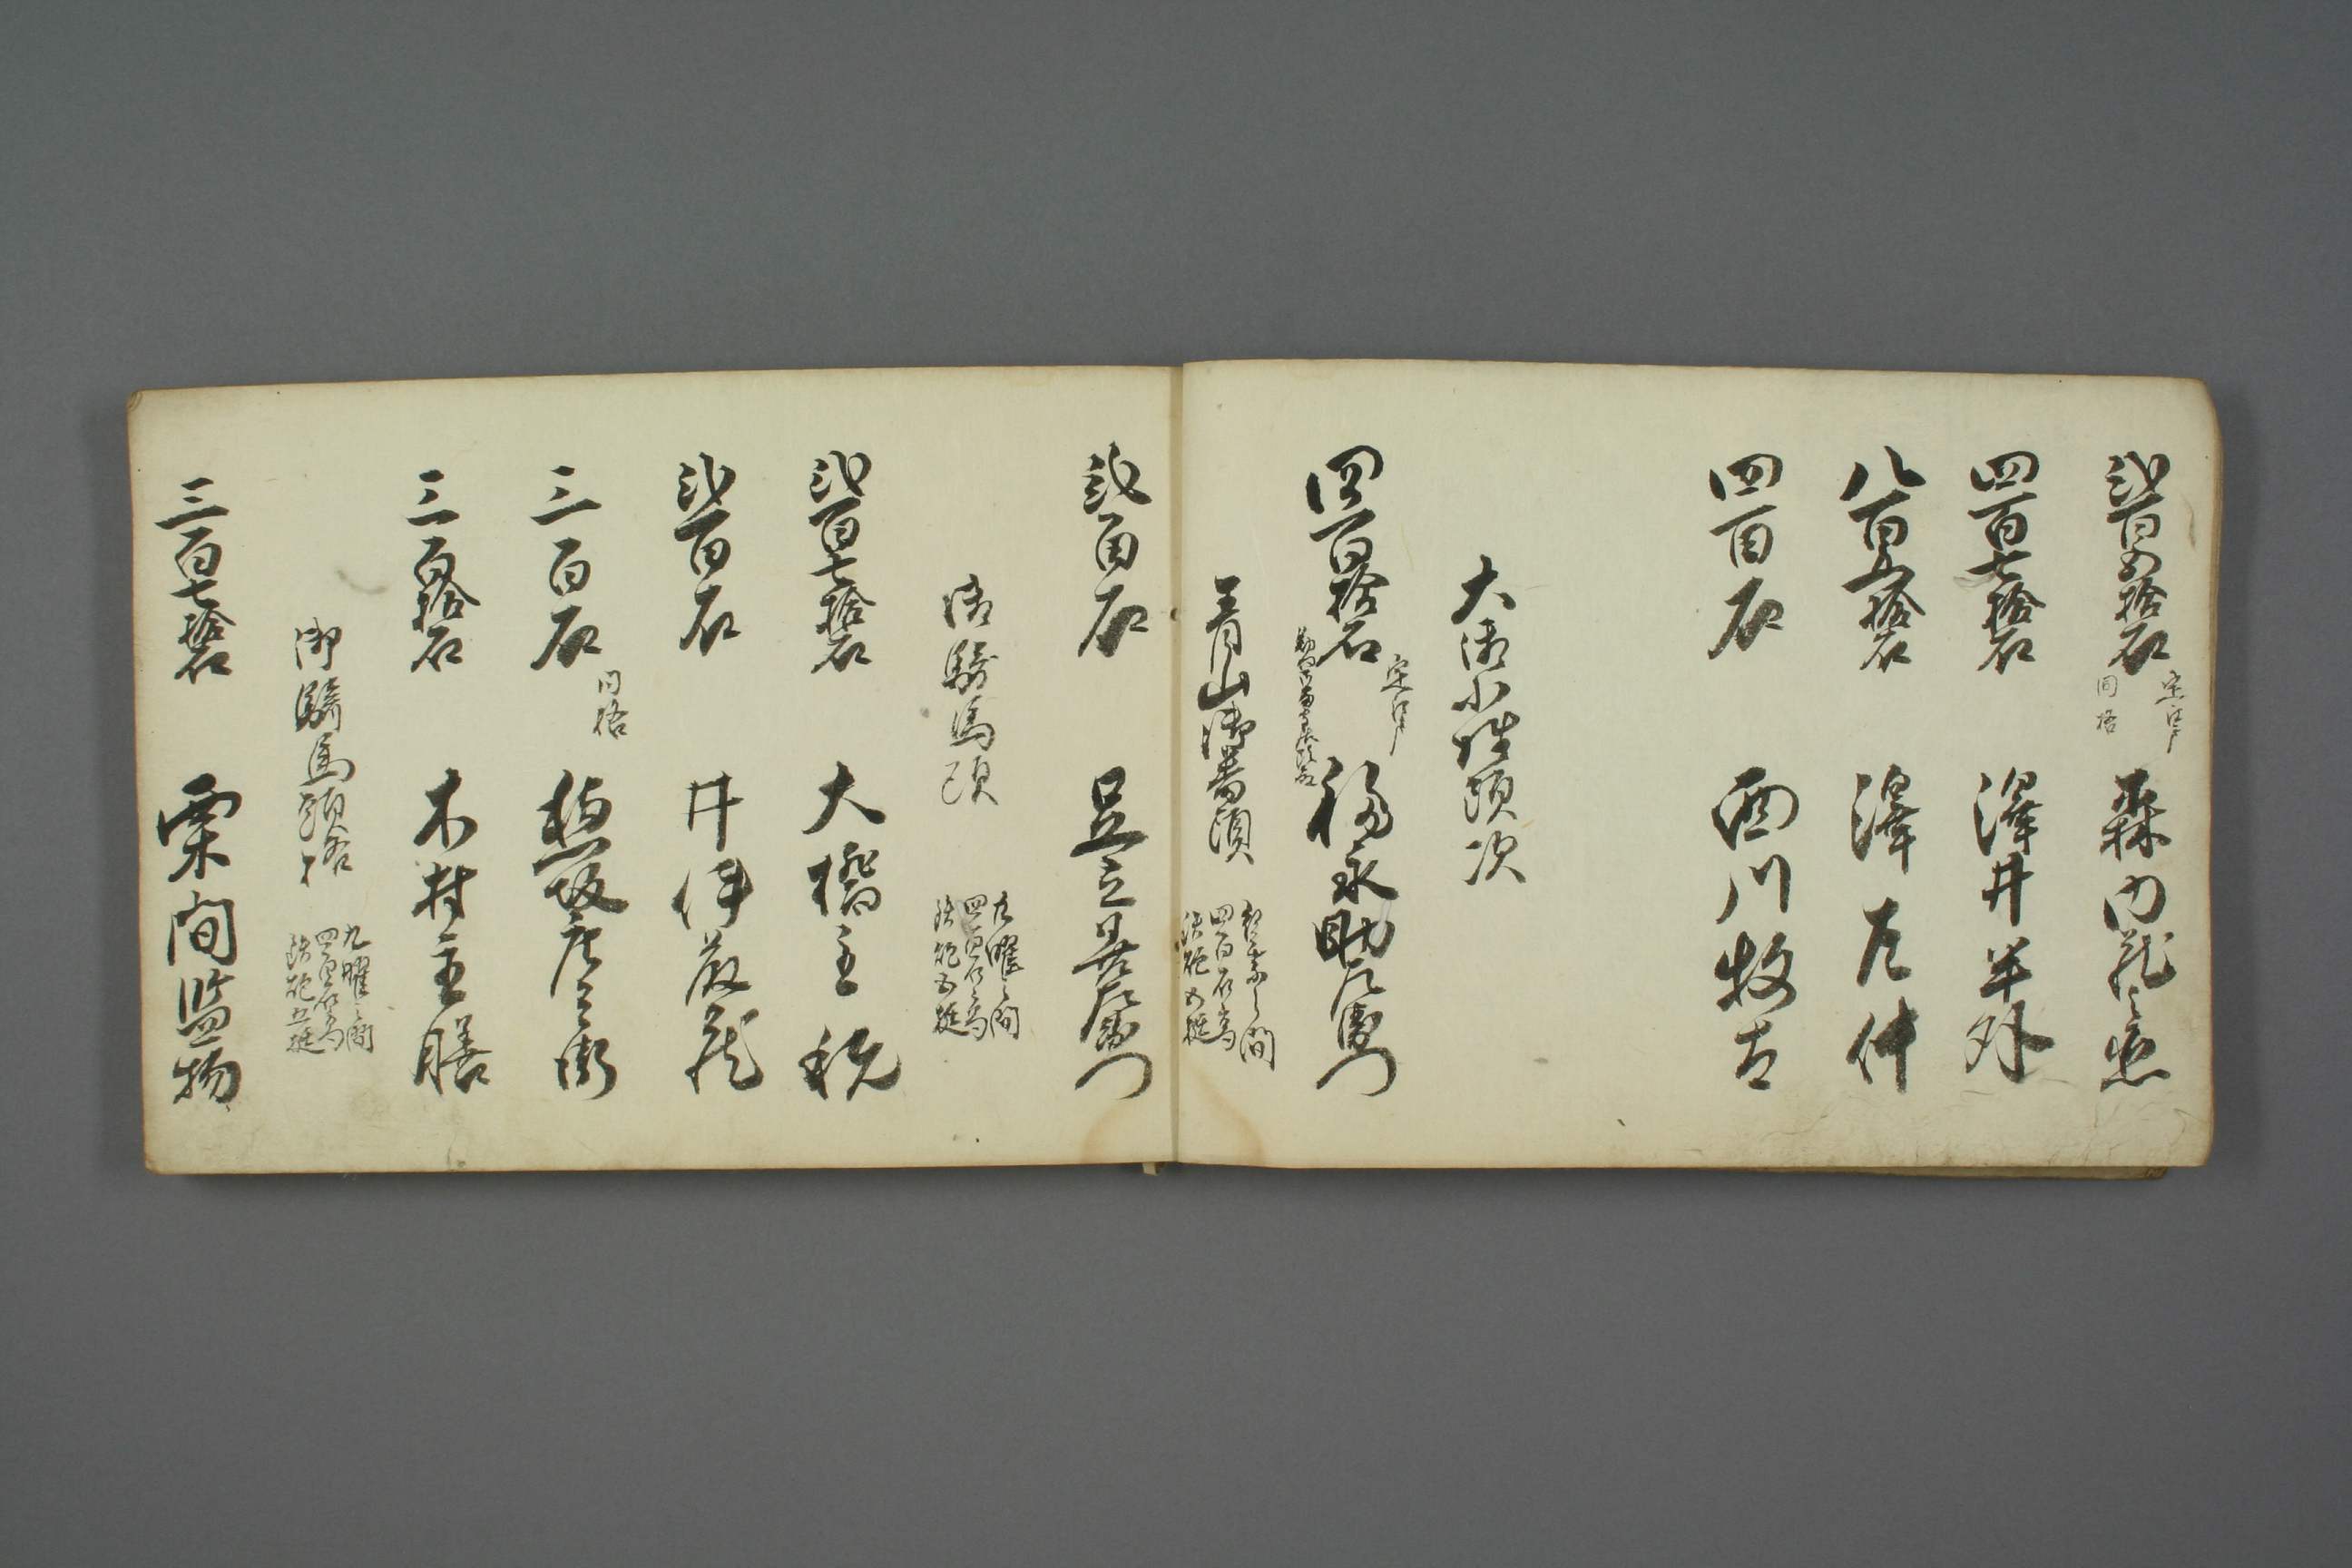 弐百五拾石 定江戸 同格 森内蔵之丞
四百七拾石 澤井半外
八百五拾石 澤左仲
四百石 西川牧太
大御小姓頭次
四百拾石 定江戸 福永助左衛門
青山御番頭
之間
四百石高
鉄砲五挺
弐百石 足立甚左衛門
御騎馬頭
九曜之間
四百石高
鉄砲五挺
弐百七拾石 大橋主税
弐百石 井伊蔵
三百石 同格
三百拾石 木村主膳
御騎馬頭格
九曜之間
四百石高
鉄砲五挺
三百七拾石 栗間監物